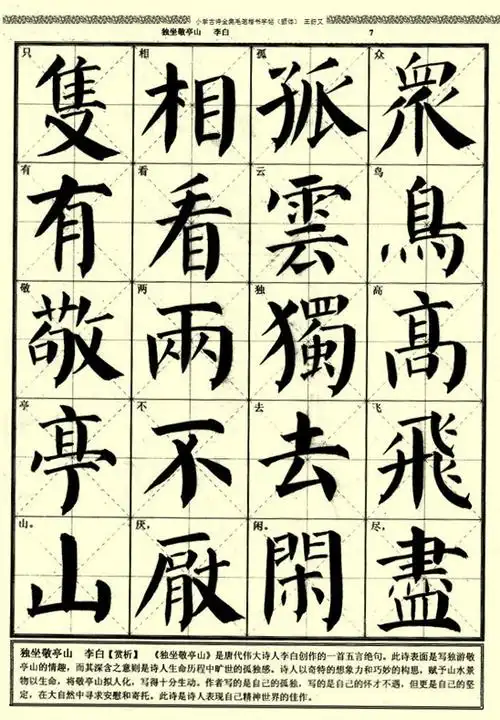 小学古诗全奥毛笔楷书字帖
独坐敬亭山 李白 7
眾鳥高飛盡
众鸟高飞尽，
孤雲獨去閑
孤云独去闲。
相看兩不厭
相看两不厌，
隻有敬亭山
只有敬亭山。
独坐敬亭山 李白【赏析】 《独坐敬亭山》是唐代伟大诗人李白创作的一首五言绝句。此诗表面是写独游敬
亭山的情趣，而其深含之意则是诗人生命历程中旷世的孤独感。诗人以奇特的想象力和巧妙的构思，赋予山水景
物以生命，将敬亭山拟人化，写得十分生动。作者写的是自己的孤独，写的是自己的怀才不遇，但更是自己的坚
定，在大自然中寻求安慰和寄托。此诗是诗人表现自己精神世界的佳作。